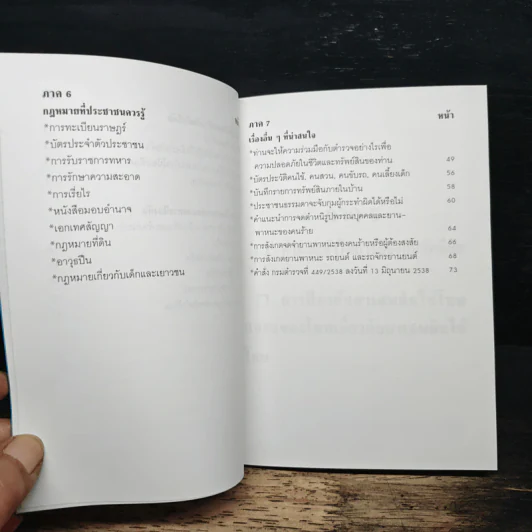 ภาค 6
กฎหมายที่ประชาชนควรรู้
*การทะเบียนราษฎร์
*บัตรประจำตัวประชาชน
*การรับราชการทหาร
*การรักษาความสะอาด
*การเรี่ยไร
*หนังสือมอบอำนาจ
*เอกเทศสัญญา
*กฎหมายที่ดิน
*อาวุธปืน
*กฎหมายเกี่ยวกับเด็กและเยาวชน
ภาค 7 หน้า
เรื่องอื่น ๆ ที่น่าสนใจ
*ท่านจะให้ความร่วมมือกับตำรวจอย่างไรเพื่อ
ความปลอดภัยในชีวิตและทรัพย์สินของท่าน 49
*บัตรประวัติคนใช้, คนสวน, คนขับรถ, คนเลี้ยงเด็ก 56
*บันทึกรายการทรัพย์สินภายในบ้าน 58
*ประชาชนธรรมดาจะจับกุมผู้กระทำผิดได้หรือไม่ 60
*คำแนะนำการจดตำหนิรูปพรรณบุคคลและยาน-
พาหนะของคนร้าย 64
*การสังเกตจดจำยานพาหนะของคนร้ายหรือผู้ต้องสงสัย 66
*การสังเกตยานพาหนะ รถยนต์ และรถจักรยานยนต์ 68
*คำสั่ง กรมตำรวจที่ 449/2538 ลงวันที่ 13 มิถุนายน 2538 73